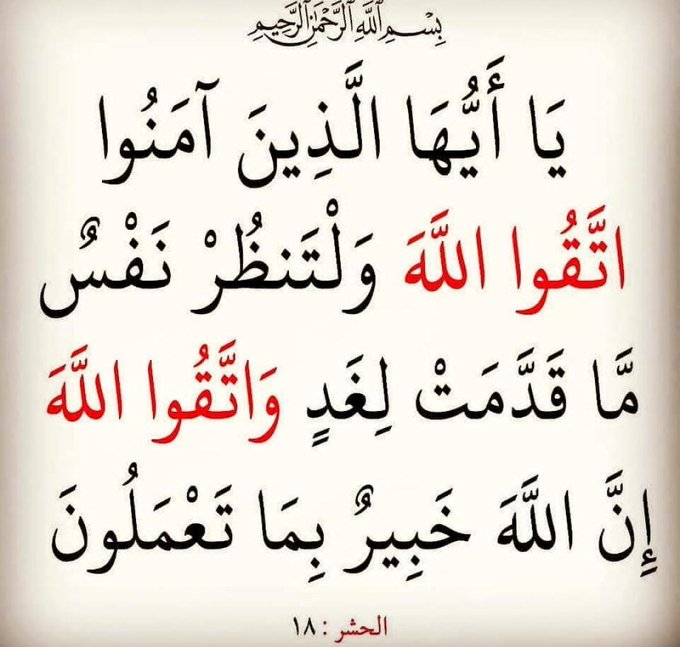 بِسْمِ اللَّهِ الرَّحْمَٰنِ الرَّحِيمِ
يَا أَيُّهَا الَّذِينَ آمَنُوا
اتَّقُوا اللَّهَ وَلْتَنظُرْ نَفْسٌ
مَّا قَدَّمَتْ لِغَدٍ وَاتَّقُوا اللَّهَ
إِنَّ اللَّهَ خَبِيرٌ بِمَا تَعْمَلُونَ
الحشر : ١٨